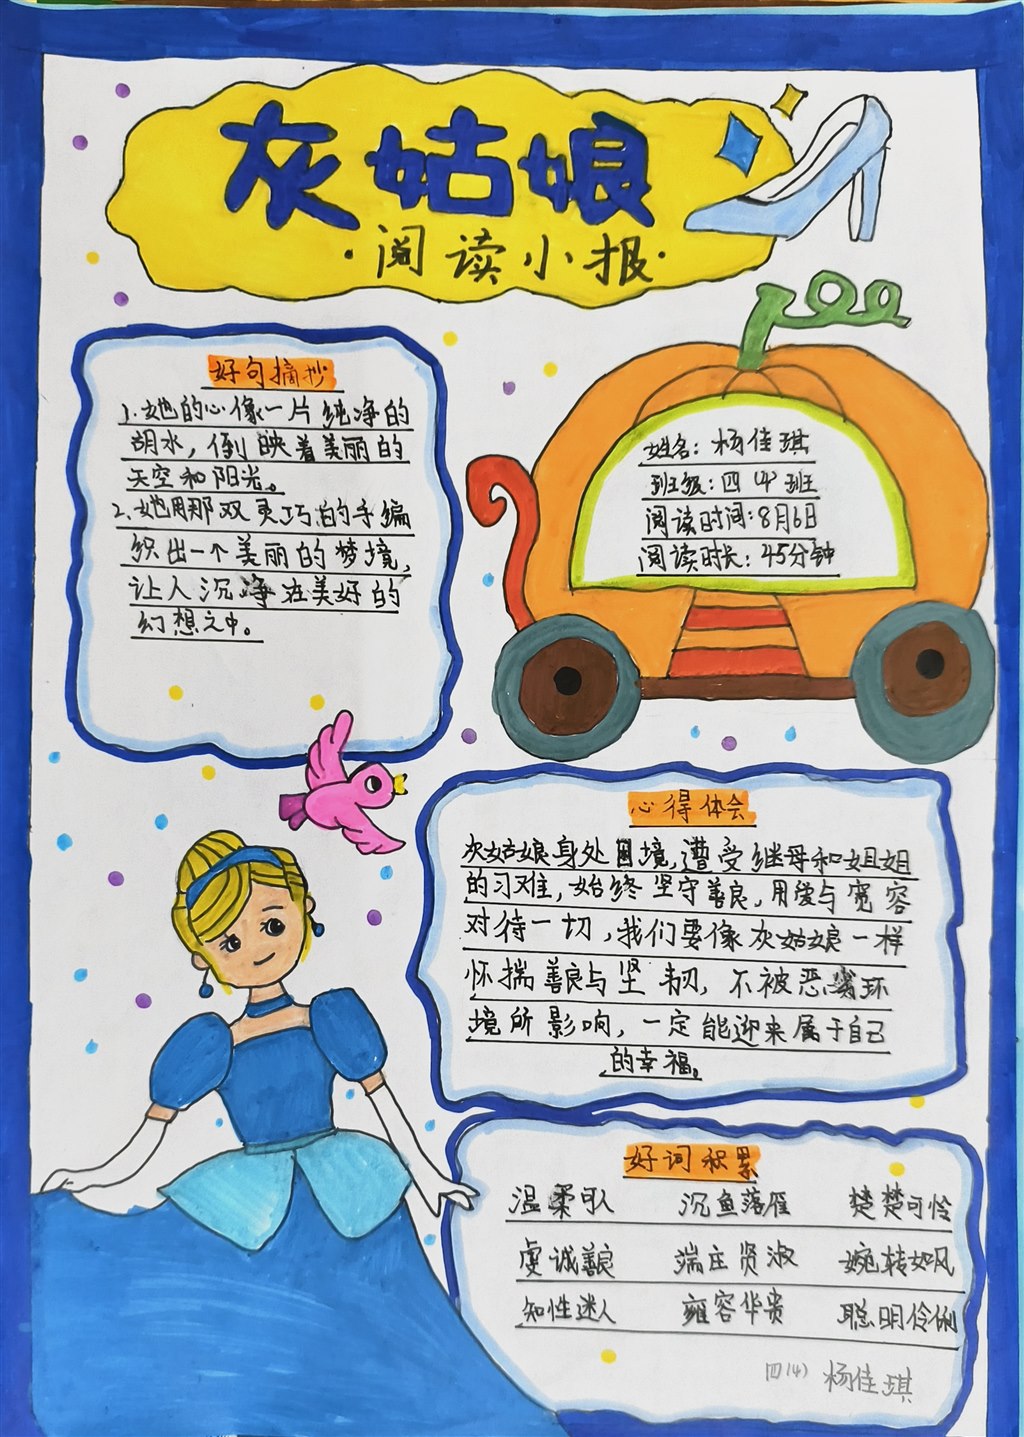 灰姑娘
·阅读小报·
好句摘抄
1.她的心像一片纯净的
胡水，倒映着美丽的
天空和阳光。
2.她用那双灵巧的手编
织出一个美丽的梦境，
让人沉净在美好的
幻想之中。
姓名：杨佳琪
班级：四（4）班
阅读时间：8月6日
阅读时长：45分钟
心得体会
灰姑娘身处困境，遭受继母和姐姐
的刁难，始终坚守善良，用爱与宽容
对待一切，我们要像灰姑娘一样
怀揣善良与坚韧，不被恶劣环
境所影响，一定能迎来属于自己
的幸福。
好词积累
温柔可人 沉鱼落雁 楚楚可怜
虔诚善良 端庄贤淑 婉转如风
知性迷人 雍容华贵 聪明伶俐
四（4） 杨佳琪